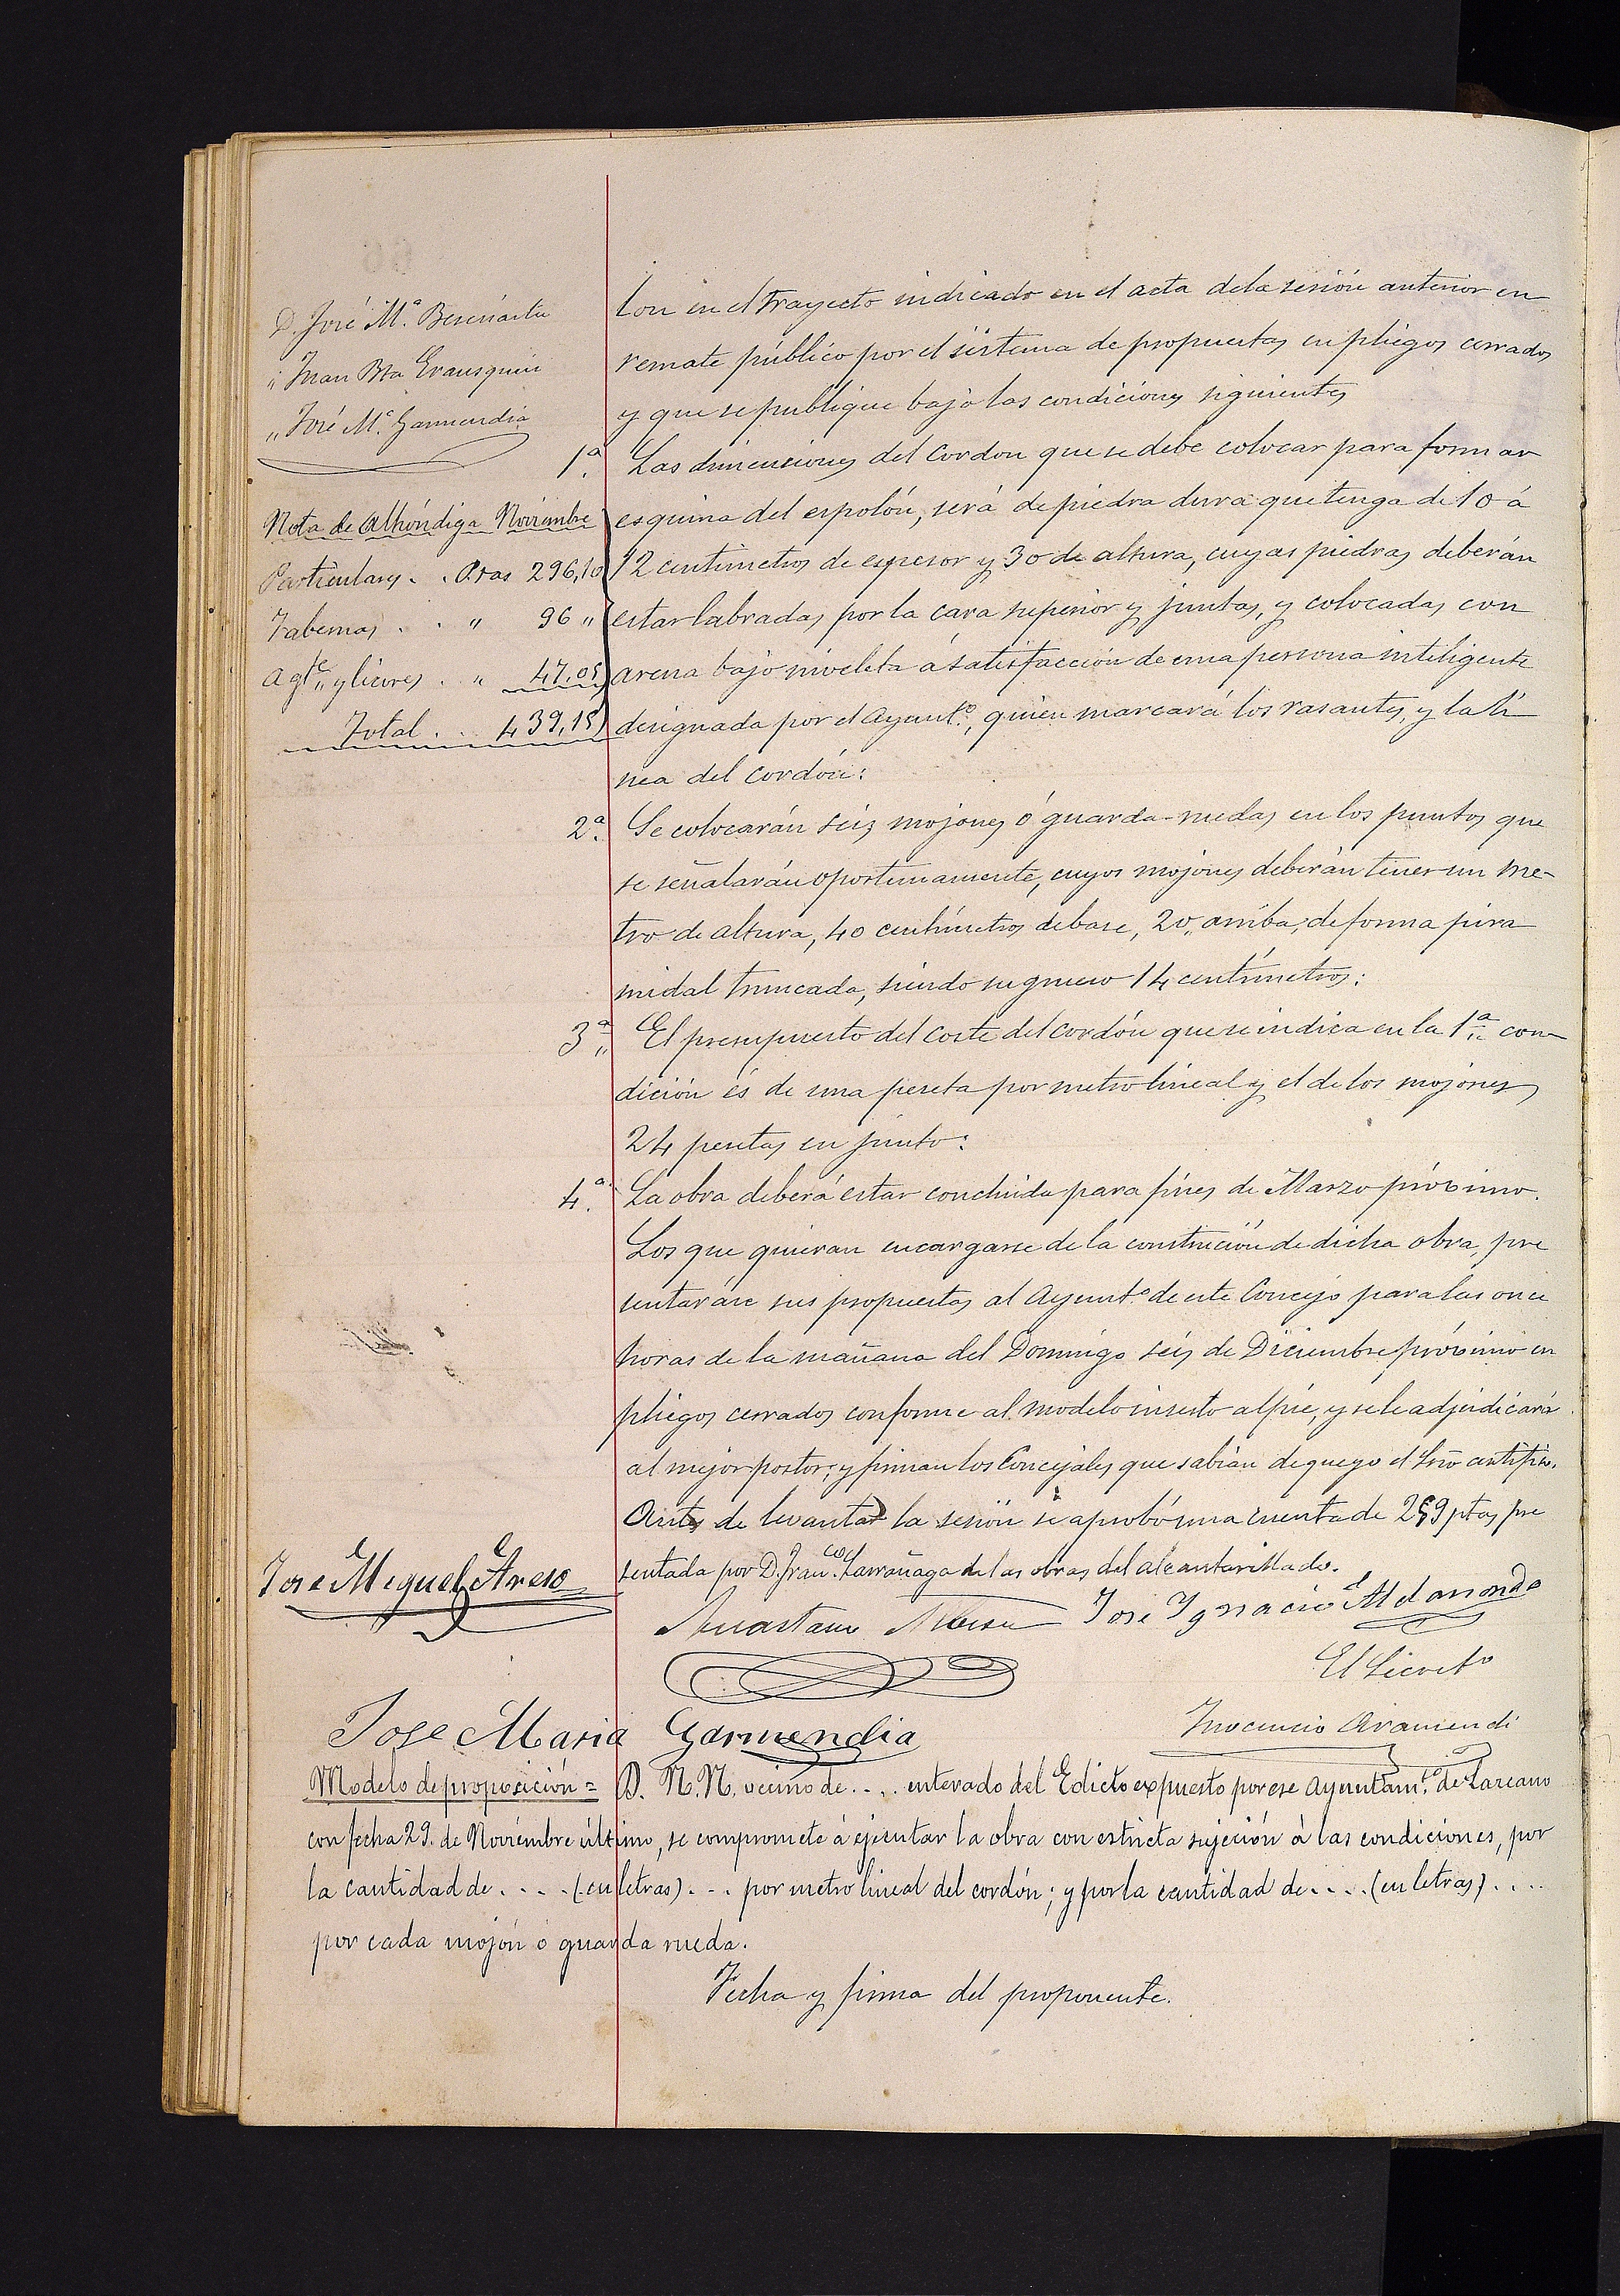 D. José M.ª Besenárta
„ Juan Bta Erausquin
„ José M.ª Garmendia
Nota de Alhóndiga Noviembre
Particulares . . Ptas 296,10
Tabernas . . „ 96 „
Agte „ y licores . „ 47,05
Total . . 439,15
lon en el trayecto indicado en el acta de la sesión anterior en
remate público por el sistema de propuestas en pliegos cerrados
y que se publique bajo las condiciones siguientes
1.ª Las dimensiones del Cordon que se debe colocar para formar
esquina del espolón, será de piedra dura que tenga de 10 á
12 centimetros de espesor y 30 de altura, cuyas piedras deberán
estar labradas por la cara superior y juntas, y colocadas con
arena bajo niveleta á satisfacción de una persona inteligente
designada por el Ayunt.º, quien marcará los rasantes, y la lí
nea del cordón:
2.ª Se colocarán seis mojones ó guarda-ruedas en los puntos que
se señalarán oportunamente, cuyos mojones deberán tener un me-
tro de altura, 40 centímetros de base, 20 „ arriba, de forma pira
midal truncada, siendo su grueso 14 centímetros:
3.ª El presupuesto del coste del cordón que se indica en la 1.ª con-
dición és de una peseta por metro lineal y el de los mojones
24 pesetas en junto:
4.ª La obra deberá estar concluida para fines de Marzo próximo.
Los que quieran encargarse de la construción de dicha obra, pre
sentaráse sus propuestas al Ayunt.º de este Concejo para las once
horas de la mañana del Domingo seis de Diciembre próximo en
pliegos cerrados conforme al modelo inserto al pie, y se le adjudicará
al mejor postor; y firman los Concejales que sabian de que yo el Srio certifico.
Antes de levantar la sesión se aprobó una cuenta de 259 ptas pre
sentada por D. Fran.co Larrañaga de las obras del alcantarillado.
Jose Miguel Areso
Jose Ignacio Aldasoro
El Secreto
Jose Maria Garmendia
Inocencio Aramendi
Modelo de proposición = D. N. N. vecino de . . . . enterado del Edicto expuesto por ese Ayuntam.to de Lazcano
con fecha 29. de Noviembre último, se compromete á ejecutar la obra con estricta sujeción á las condiciones, por
la cantidad de . . . . (en letras) . . . por metro lineal del cordón; y por la cantidad de . . . . (en letras) . . . .
por cada mojón ó guarda rueda.
Fecha y firma del proponente.